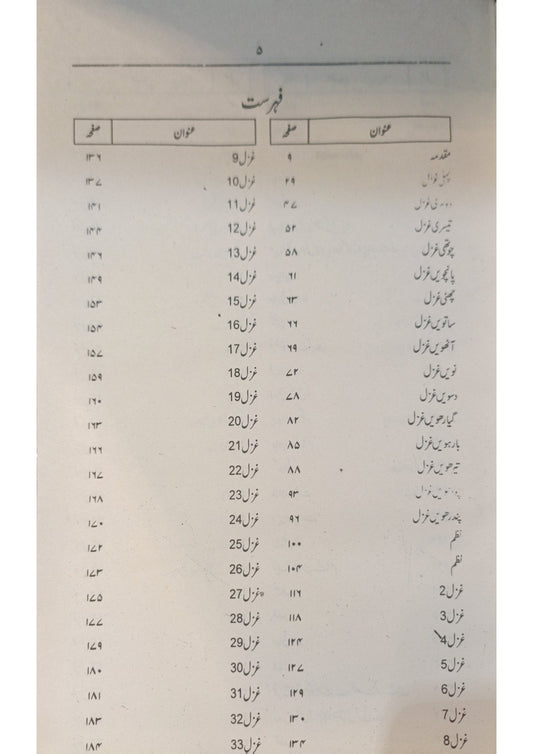 ۵
فہرست
عنوان صفحہ
مقدمہ ۹
پہلی غزل ۲۹
دوسری غزل ۴۷
تیسری غزل ۵۲
چوتھی غزل ۵۸
پانچویں غزل ۶۱
چھٹی غزل ۶۳
ساتویں غزل ۶۶
آٹھویں غزل ۶۹
نویں غزل ۷۲
دسویں غزل ۷۸
گیارھویں غزل ۸۲
بارہویں غزل ۸۵
تیرھویں غزل ۸۸
غزل ۹۳
پندرھویں غزل ۹۶
نظم ۱۰۰
نظم ۱۰۴
غزل2 ۱۱۶
غزل3 ۱۱۸
غزل4 ۱۲۴
غزل5 ۱۲۷
غزل6 ۱۲۹
غزل7 ۱۳۰
غزل8 ۱۳۴
عنوان صفحہ
غزل9 ۱۳۶
غزل10 ۱۳۷
غزل11 ۱۴۱
غزل12 ۱۴۴
غزل13 ۱۴۶
غزل14 ۱۴۹
غزل15 ۱۵۳
غزل16 ۱۵۴
غزل17 ۱۵۷
غزل18 ۱۵۹
غزل19 ۱۶۰
غزل20 ۱۶۳
غزل21 ۱۶۶
غزل22 ۱۶۷
غزل23 ۱۶۸
غزل24 ۱۷۰
غزل25 ۱۷۲
غزل26 ۱۷۳
غزل27 ۱۷۵
غزل28 ۱۷۷
غزل29 ۱۷۹
غزل30 ۱۸۰
غزل31 ۱۸۱
غزل32 ۱۸۳
غزل33 ۱۸۴